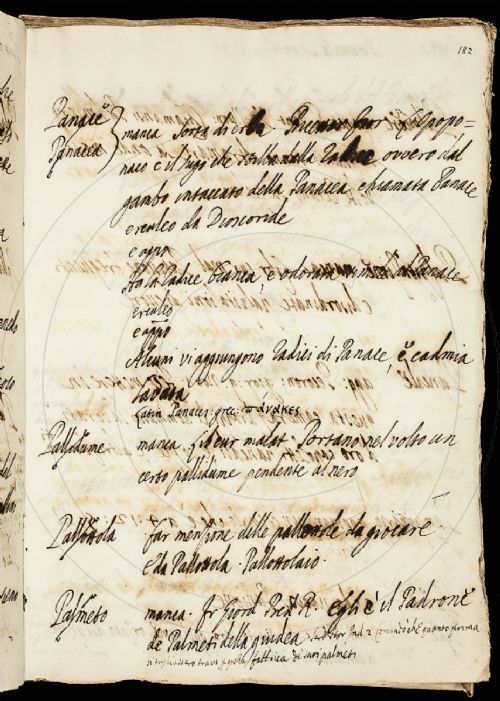 182
Panace
Panacea
manca sorta di erba. l'Opopo=
naco è il sugo che stilla dalla radice ovvero dal
gambo intaccato della Panacea, chiamata Panace
erculeo da Dioscoride
e app.o
Ha la radice bianca, e odorata Panace
erculeo
e app.o
Alcuni vi aggiungono radici di Panace, e cadmia
lavata
Latin Panaces. grec.
Pallidume
manca. malat. Portano nel volto un
certo pallidume pendente al nero
Pallottola
far menzione delle pallottole da giocare
e da Pallottola Pallottolaio.
Palmeto
manca. Fr Giord Pred. R. egli è il Padrone
de' Palmeti della giudea
fabbrica de' suoi palmeti